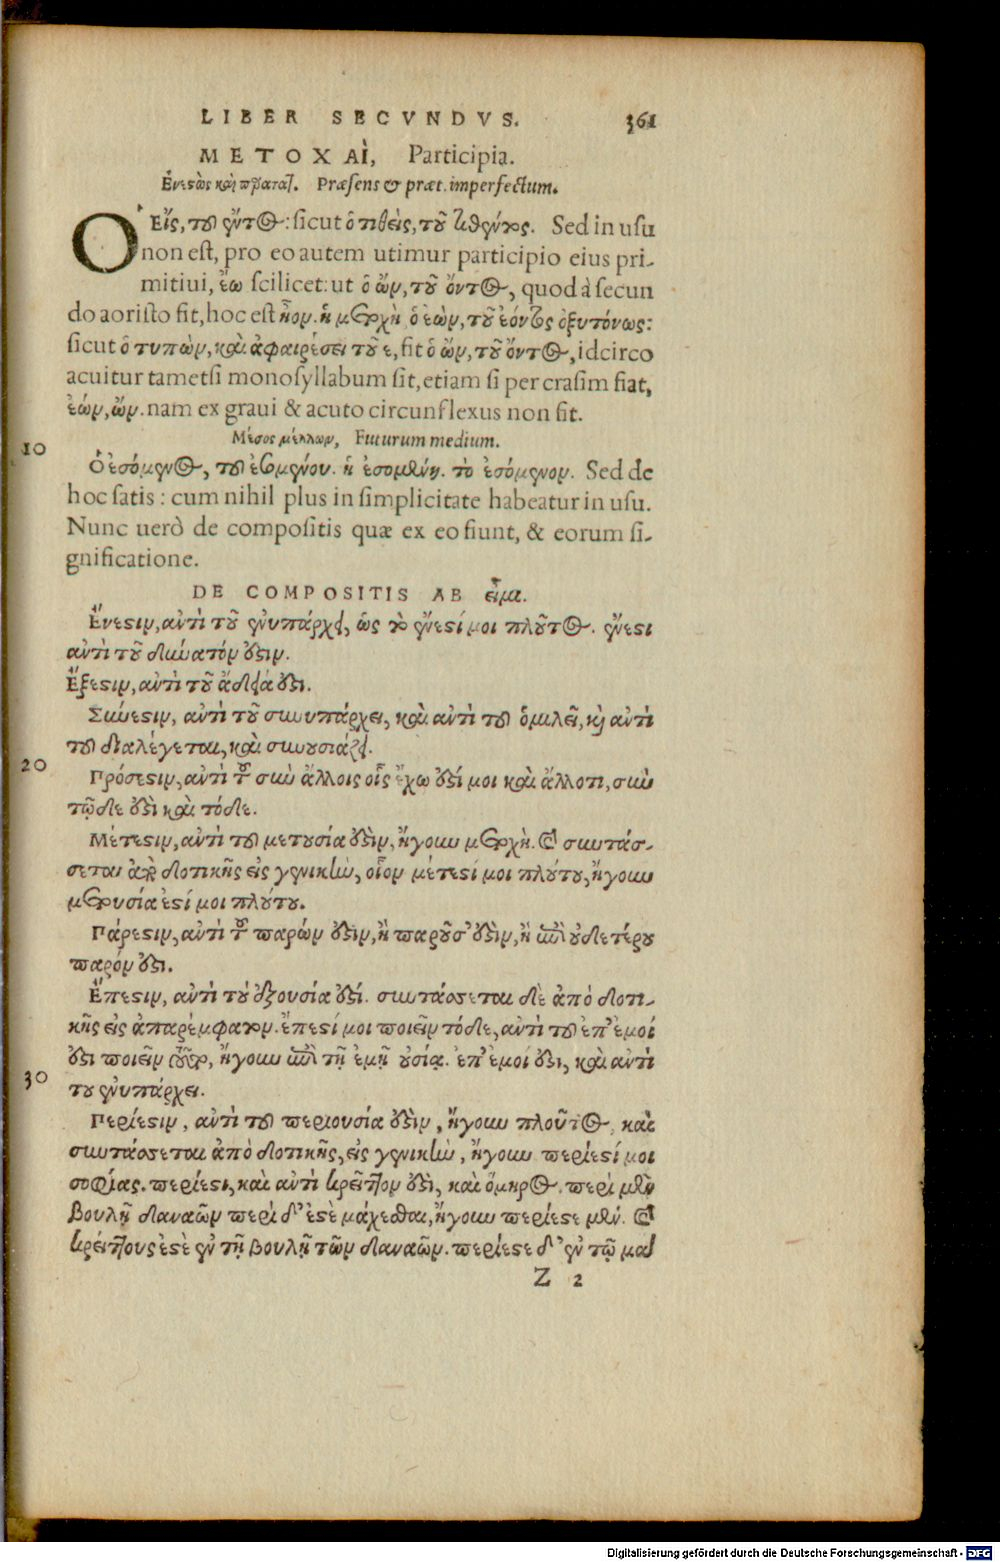 LIBER SECVNDVS. 361
ΜΕΤΟΧΑὶ, Participia.
Ενεςὼς καὶ πρατατ. Præsens & præt. imperfectum.
Ὁ Εἲς, τοῦ ἔντος: sicut ὁ τιθεὶς, τοῦ τιθέντος. Sed in usu
non est, pro eo autem utimur participio eius pri-
mitiui, ἔω scilicet: ut ὁ ὢν, τοῦ ὄντος, quod à secun
do aoristo fit, hoc est ἦον. ἡ μετοχὴ ὁ ἐὼν, τοῦ ἐόντος ὀξυτόνως:
sicut ὁ τυπὼν, καὶ ἀφαιρέσει τοῦ ε, fit ὁ ὢν, τοῦ ὄντος, idcirco
acuitur tametsi monosyllabum sit, etiam si per crasim fiat,
ἐών, ὤν. nam ex graui & acuto circunflexus non fit.
Μέσος μέλλων, Futurum medium.
10 Ὁ ἐσόμενος, τοῦ ἐσομένου. ἡ ἐσομένη. τὸ ἐσόμενον. Sed de
hoc satis: cum nihil plus in simplicitate habeatur in usu.
Nunc uerò de compositis quæ ex eo fiunt, & eorum si-
gnificatione.
DE COMPOSITIS AB εἶμι.
Ἔνεςιν, ἀντὶ τοῦ ἐνυπάρχει, ὡς τὸ ἔνεςί μοι πλοῦτος. ἔνεςι
ἀντὶ τοῦ δυνατόν ἐςιν.
Ἔξεςιν, ἀντὶ τοῦ ἄδειά ἐςι.
Σύνεςιν, ἀντὶ τοῦ συνυπάρχει, καὶ ἀντὶ τοῦ ὁμιλεῖ, καὶ ἀντὶ
τοῦ διαλέγεται, καὶ συνουσιάζει.
20 Πρόσεςιν, ἀντὶ τοῦ σὺν ἄλλοις οἷς ἔχω ἐςί μοι καὶ ἄλλο τι, σὺν
τῷδε ἐςὶ καὶ τόδε.
Μέτεςιν, ἀντὶ τοῦ μετουσία ἐςὶν, ἤγουν μετοχὴ. καὶ συντάσ-
σεται ἀπὸ δοτικῆς εἰς γενικὴν, οἷον μέτεςί μοι πλούτου, ἤγουν
μετουσία ἐςί μοι πλούτου.
Πάρεςιν, ἀντὶ τοῦ παρών ἐςιν, ἢ παροῦσ' ἐςὶν, ἢ ἐπὶ οὐδετέρου
παρόν ἐςι.
Ἔπεςιν, ἀντὶ τοῦ ἐξουσία ἐςί. συντάσσεται δὲ ἀπὸ δοτι-
κῆς εἰς ἀπαρέμφατον. ἔπεςί μοι ποιεῖν τόδε, ἀντὶ τοῦ ἐπ' ἐμοί
ἐςι ποιεῖν τοῦτο, ἤγουν ἐπὶ τῇ ἐμῇ οὐσίᾳ. ἐπ' ἐμοί ἐςι, καὶ ἀντὶ
30 τοῦ ἐνυπάρχει.
Περίεςιν, ἀντὶ τοῦ περιουσία ἐςὶν, ἤγουν πλοῦτος, καὶ
συντάσσεται ἀπὸ δοτικῆς, εἰς γενικὴν, ἤγουν περίεςί μοι
σοφίας. περίεςι, καὶ ἀντὶ κρεῖττον ἐςὶ, καὶ ὅμηρος. περὶ μὲν
βουλῇ δαναῶν περὶ δ' ἐςὲ μάχεσθαι, ἤγουν περίεςε μὲν. καὶ
κρείττους ἐςὲ ἐν τῇ βουλῇ τῶν δαναῶν. περίεςε δ' ἐν τῷ μα
Z 2
Digitalisierung gefördert durch die Deutsche Forschungsgemeinschaft - DFG